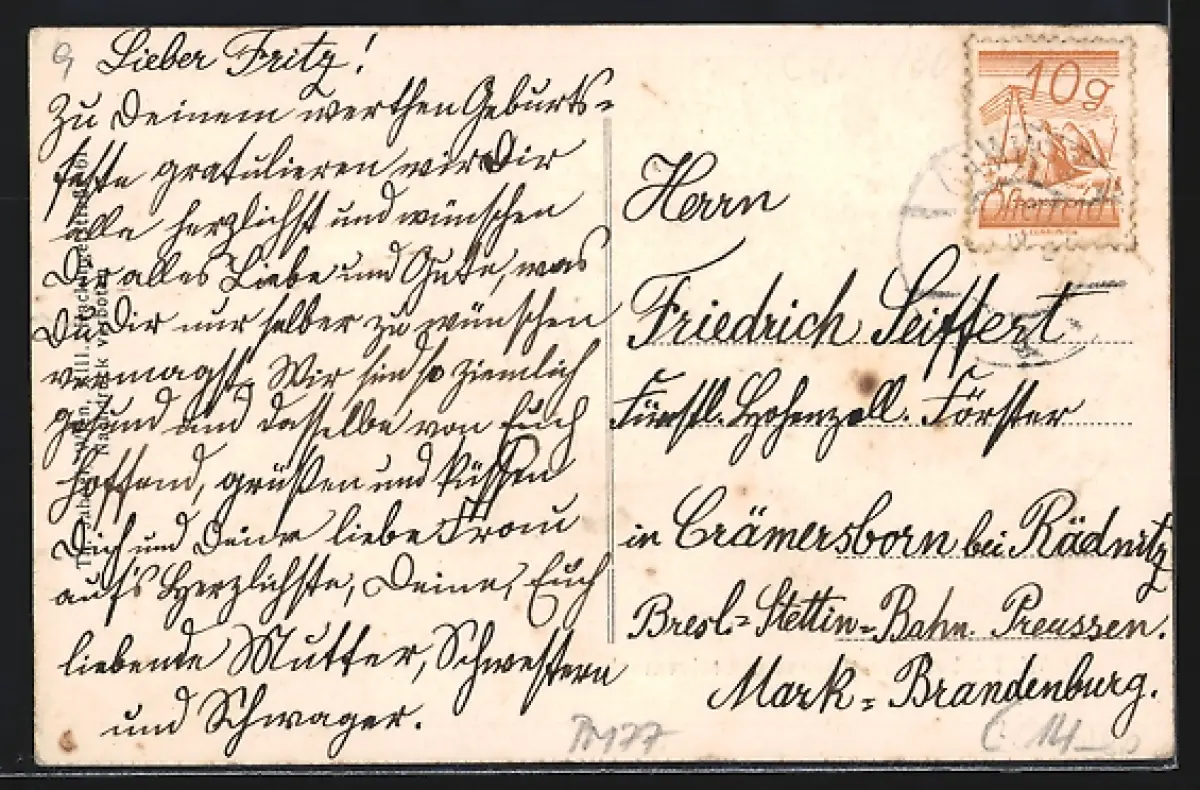 Lieber Fritz!
Zu Deinem werthen Geburts-
feste gratulieren wir Dir
alle herzlichst und wünschen
Dir alles Liebe und Gute, was
Du Dir nur selber zu wünschen
vermagst. Wir sind so ziemlich
gesund und dasselbe von Euch
hoffend, grüßen und küssen
Dich und Deine liebe Frau
auf's Herzlichste, Deine, Euch
liebende Mutter, Schwestern
und Schwager.
10g
Österreich
Herrn
Friedrich Seiffert
Fürstl. Hohenzoll. Förster
in Crämersborn bei Rädnitz
Bresl.=Stettin=Bahn. Preussen.
Mark=Brandenburg.
Nachdruck verboten
Pr177